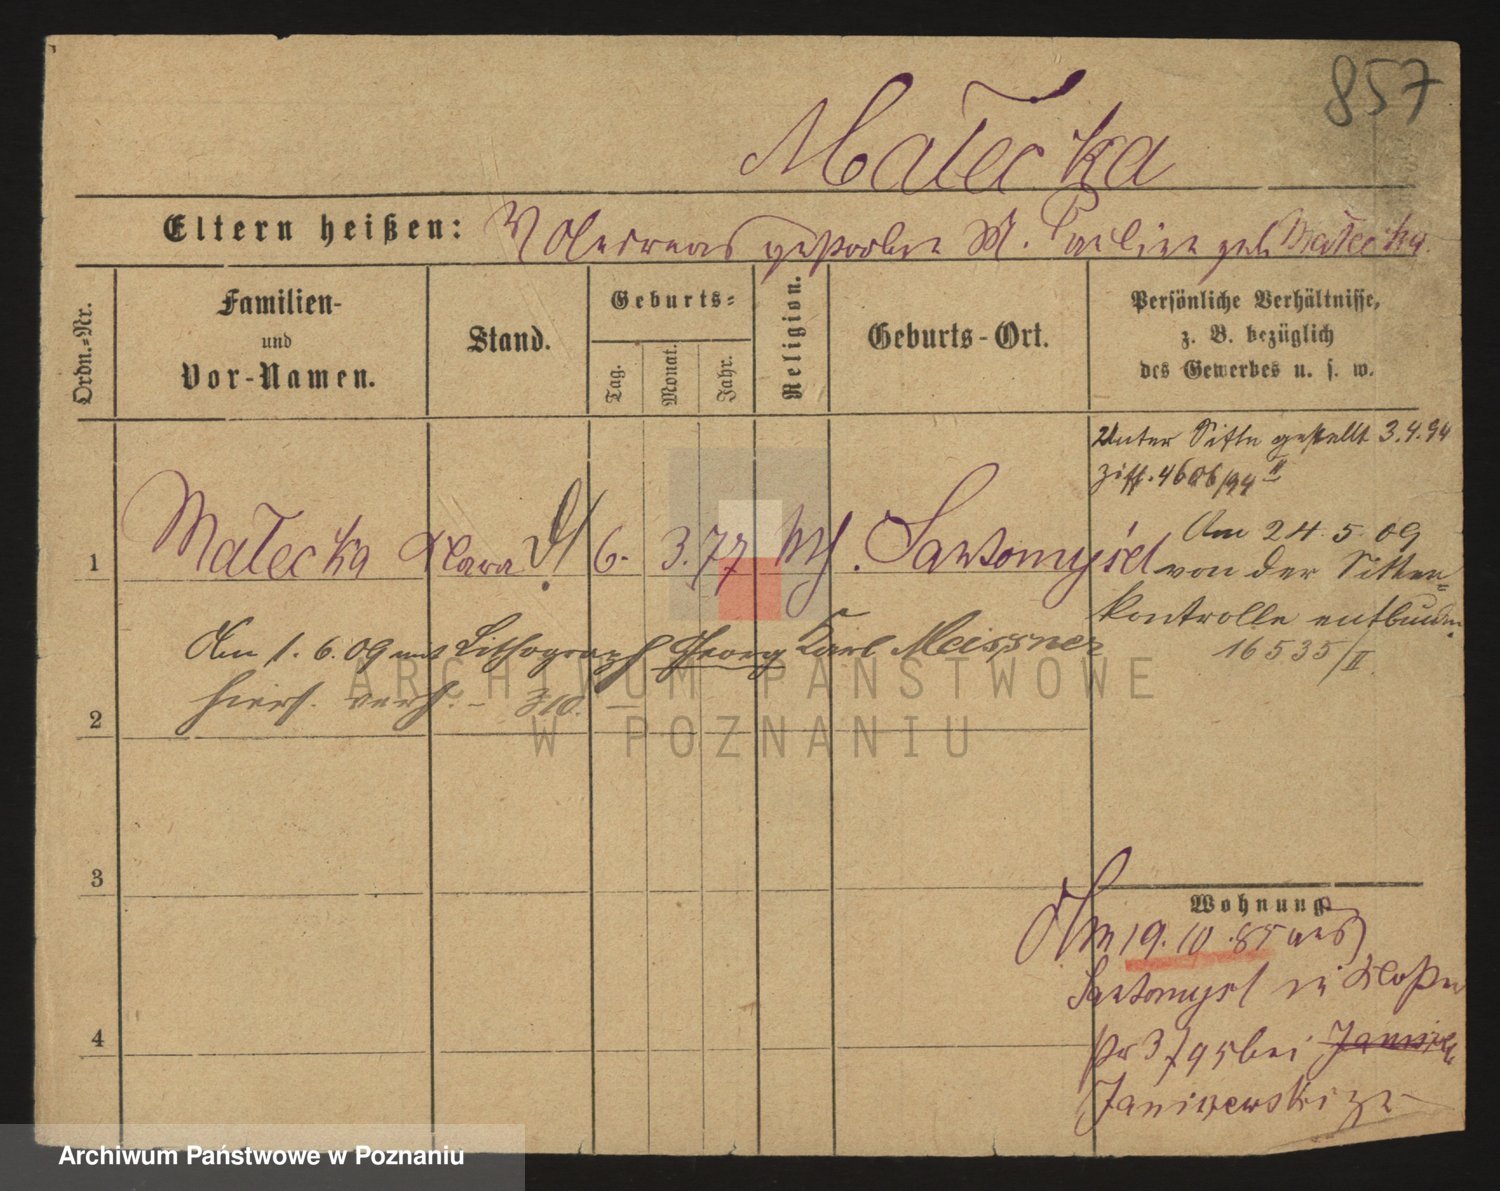 857
Małecka
Eltern heißen: V Andreas gestorben M. Pauline geb Małecka.
Ordn.=Nr.
Familien-
und
Vor-Namen.
Stand.
Geburts=
Tag.
Monat.
Jahr.
Religion.
Geburts-Ort.
Persönliche Verhältnisse,
z. B. bezüglich
des Gewerbes u. s. w.
Unter Sitte gestellt 3.4.94
Ziff. 4606/94 II
1 Małecka Klara 6. 3. 77 Santomyśel
Am 24.5.09
von der Sitten=
kontrolle entbunden
16535/II
Am 1.6.09 mit Lithograph Georg Karl Meissner
hiers. verh. - 310. -
2
3
4
Wohnung
Am 19.10.85 aus
Santomysl in
3/95 bei
Janiszewski
ARCHIWUM PAŃSTWOWE
W POZNANIU
Archiwum Państwowe w Poznaniu